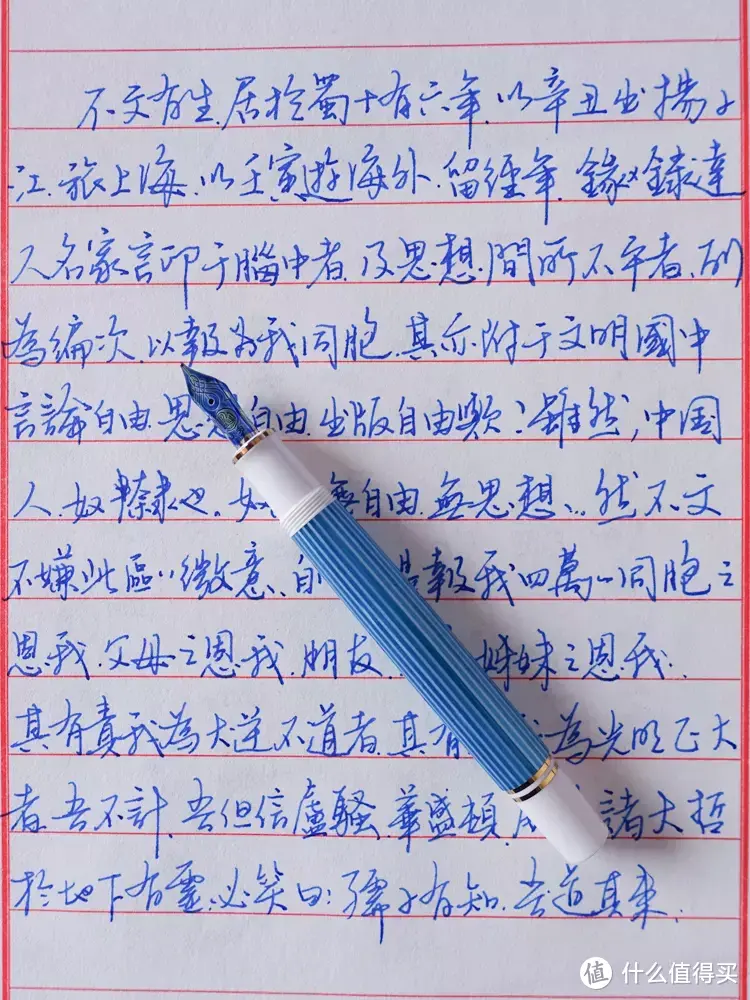 不文有生.居於蜀十有六年.以辛丑出揚子
江.旅上海.以壬寅遊海外.留經年.錄達
人名家言印于腦中者.及思想.間所不平者.列
為編次.以報為我同胞.其亦附于文明國中
言論自由.思 自由.出版自由歟?雖然,中國
人.奴隸也.奴 無自由.無思想..然不文
不嫌此區〃微意.自 是報我四萬〃同胞之
恩我.父母之恩我.朋友 姊妹之恩我.
其有責我為大逆不道者.其有 為光明正大
者.吾不計.吾但信盧騷.華盛頓. 諸大哲
於地下有靈.必笑曰:孺子有知.吾道其東.
值 什么值得买